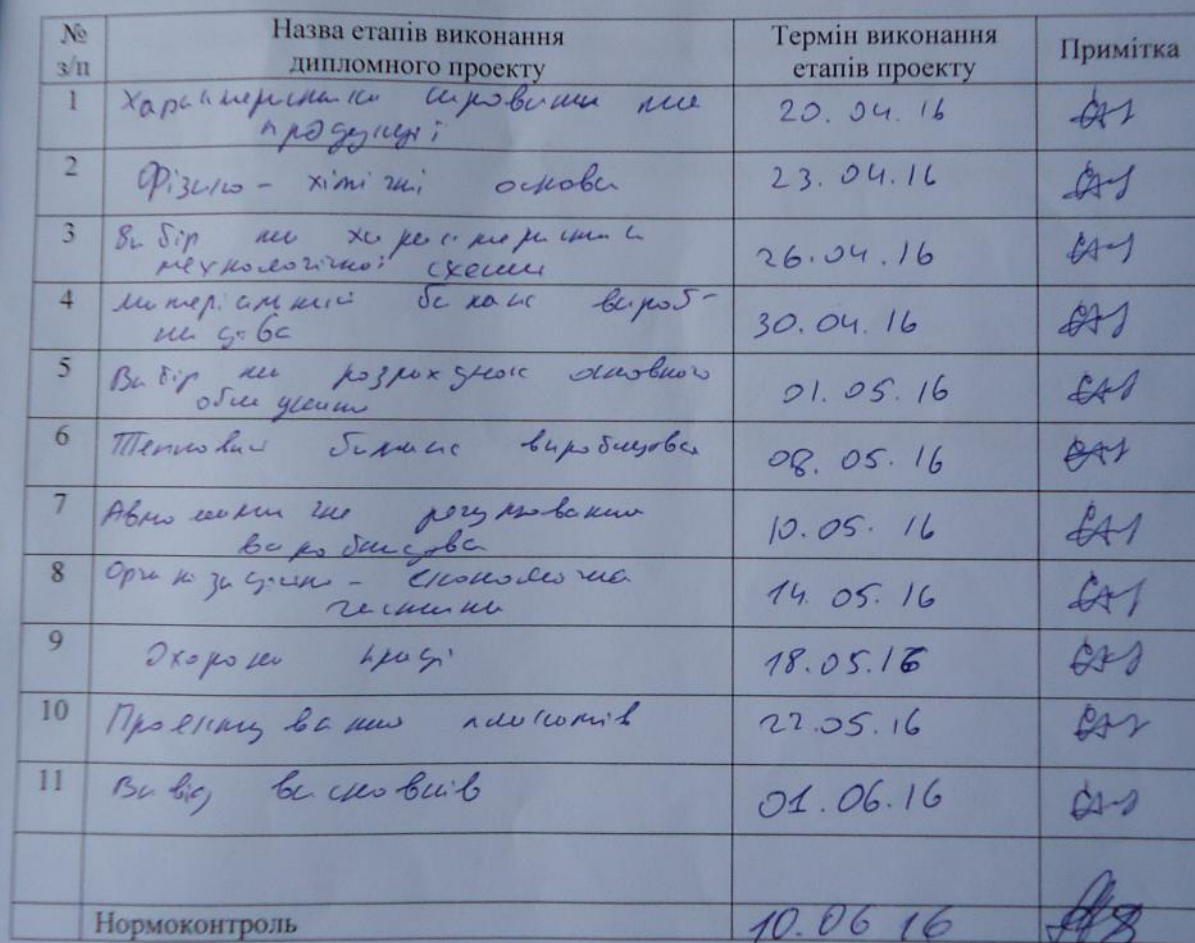 № з/п Назва етапів виконання дипломного проекту Термін виконання етапів проекту Примітка
1 Характеристика сировини та 20.04.16
продукції
2 Фізико-хімічні основи 23.04.16
3 Вибір та характеристика 26.04.16
технологічної схеми
4 Матеріальний баланс вироб-
ництва 30.04.16
5 Вибір та розрахунок основного 01.05.16
обладнання
6 Тепловий баланс виробництва 08.05.16
7 Автоматичне регулювання 10.05.16
виробництва
8 Організаційно-економічна 14.05.16
частина
9 Охорона праці 18.05.16
10 Проектування плакатів 22.05.16
11 Вивід висновків 01.06.16
Нормоконтроль 10.06 16